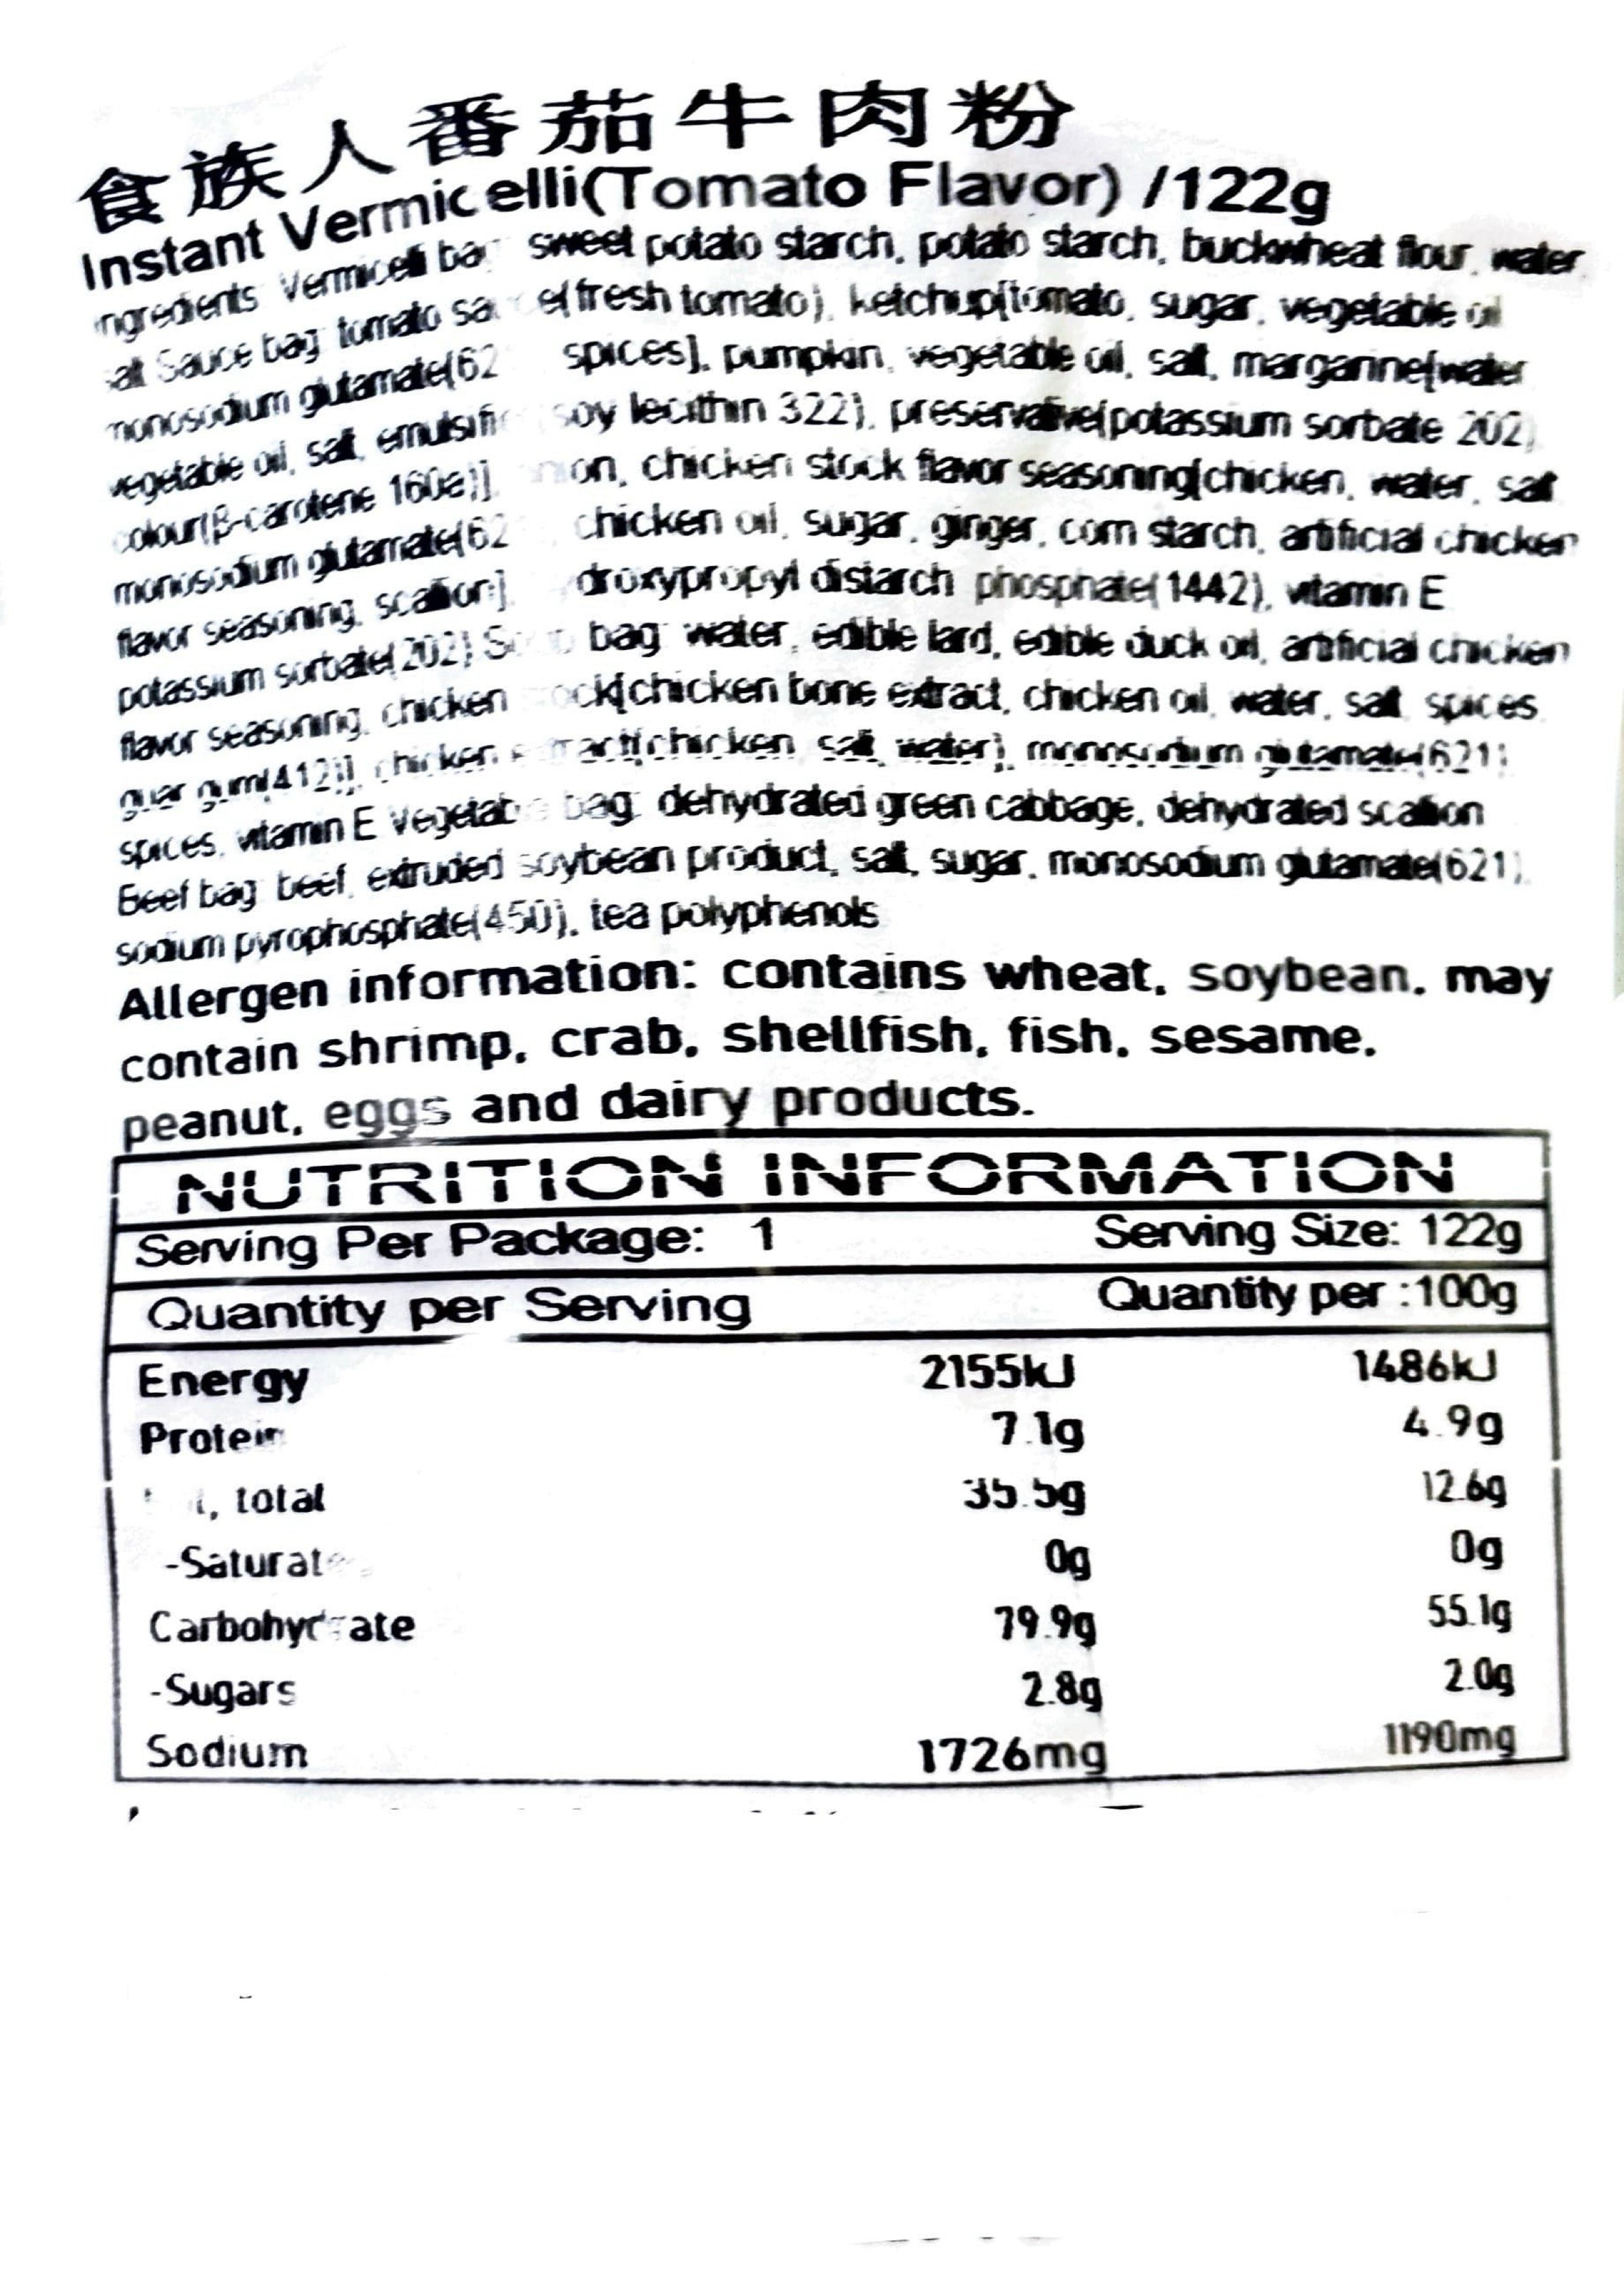 食族人番茄牛肉粉
Instant Vermicelli(Tomato Flavor) /122g
ingredients Vermicelli bag sweet potato starch, potato starch, buckwheat flour, water,
salt Sauce bag: tomato sauce(fresh tomato), ketchup[tomato, sugar, vegetable oil
monosodium glutamate(62 spices], pumpkin, vegetable oil, salt, margarine[water
vegetable oil, salt, emulsifi soy lecithin 322), preservative(potassium sorbate 202),
colour(β-carotene 160a)] on, chicken stock flavor seasoning[chicken, water, salt
monosodium glutamate(62 chicken oil, sugar, ginger, corn starch, artificial chicken
flavor seasoning, scallion], droxypropyl distarch phosphate(1442), vitamin E
potassium sorbate(202) So bag water, edible lard, edible duck oil, artificial chicken
flavor seasoning, chicken ock[chicken bone extract, chicken oil, water, salt spices
guar gum(412)], chicken extract(chicken, salt, water), monosodium glutamate(621)
spices, vitamin E Vegetable bag: dehydrated green cabbage, dehydrated scallion
Beef bag: beef, extruded soybean product, salt, sugar, monosodium glutamate(621),
sodium pyrophosphate(450), tea polyphenols
Allergen information: contains wheat, soybean, may
contain shrimp, crab, shellfish, fish, sesame,
peanut, eggs and dairy products.
NUTRITION INFORMATION
Serving Per Package: 1 Serving Size: 122g
Quantity per Serving Quantity per :100g
Energy 2155kJ 1486kJ
Protein 7.1g 4.9g
total 35.5g 12.6g
-Saturate 0g 0g
Carbohydrate 79.9g 55.1g
-Sugars 2.8g 2.0g
Sodium 1726mg 1190mg